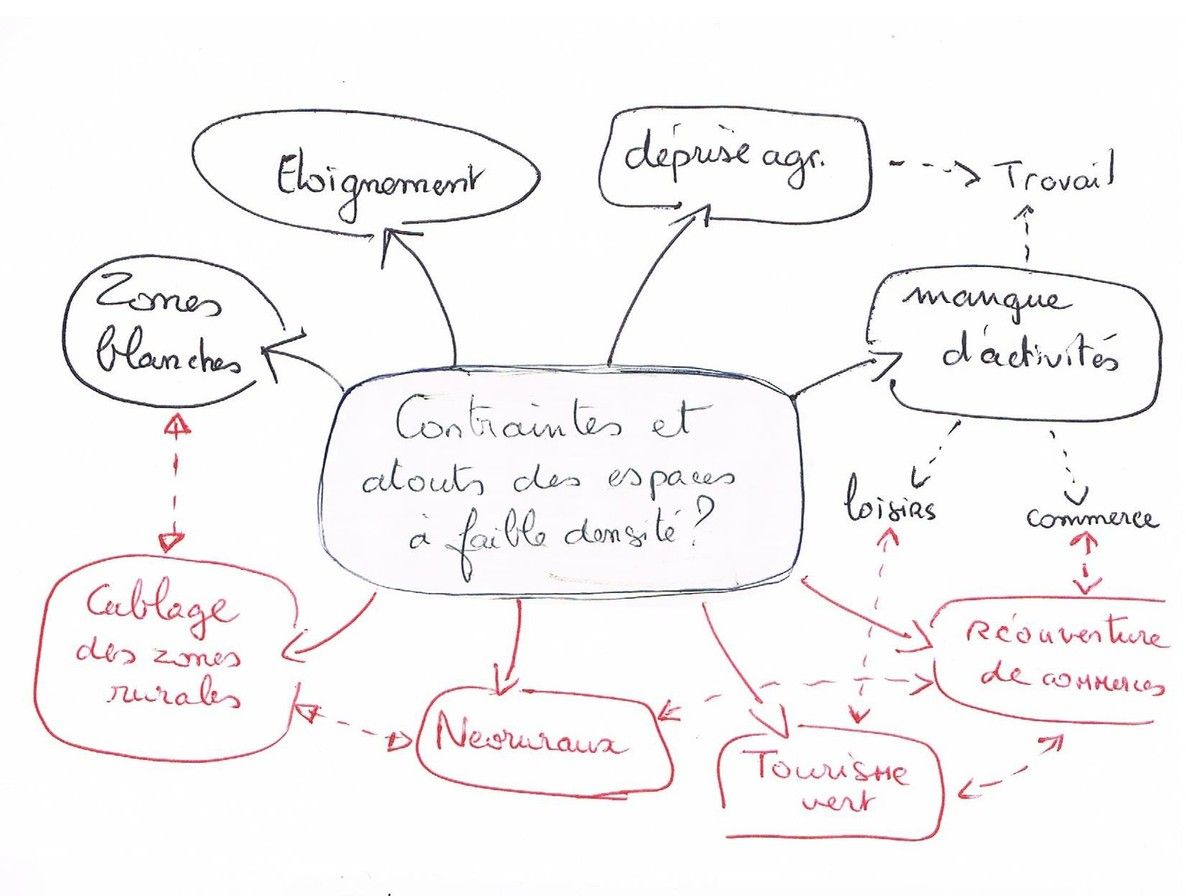 Eloignement
déprise agr.
Travail
Zones
blanches
manque
d'activités
Contraintes et
atouts des espaces
à faible densité?
loisirs
commerce
Cablage
des zones
rurales
Réouverture
de commerces
Neoruraux
Tourisme
vert